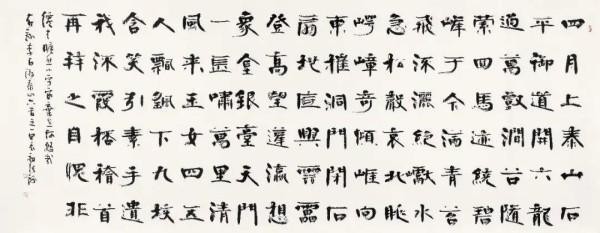 四月上泰山石
平御道開六龍
過萬壑澗谷隨
縈回馬跡繞碧
峰于今滿青苔
飛流灑絕巘水
急松聲哀北眺
崿嶂奇傾崖向
東摧洞門閉石
扇地底興雲靁
登高望蓬瀛想
象金銀臺天門
一長嘯萬里清
風來玉女四五
人飄飖下九垓
含笑引素手遺
我流霞杯稽首
再拜之自愧非
仙才曠然小宇宙棄世何悠哉
右錄李白游泰山六首之一